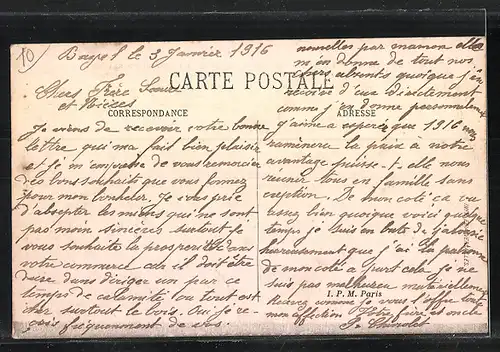 10
Bagel le 3 Janvier 1916
CARTE POSTALE
CORRESPONDANCE
ADRESSE
Chers Frère Soeur
et Nièces
Je viens de recevoir votre bonne
lettre qui ma fait bien plaisir
et je m'empresse de vous remercier
des bons souhaits que vous formez
pour mon bonheur. Je vous prie
d'accepter les miens qui ne sont
pas moin sincères surtout je
vous souhaite la prosperité dans
votre commerce car il doit être
dure dans diriger un par ce
temps de calamité ou tout est
cher surtout le bois. Oui je re-
çois fréquemment de ces
nouvelles par maman elle
m'en donne de tout nos
chers absents quoique j'en
reçoive d'eux directement
comme j'en donne personnelement
J'aime a espérer que 1916 nous
ramènera la paix a notre
avantage puisse-t-elle nous
reunir tous en famille sans
exeption. De mon coté ca va
assez bien quoique voici quelque
temps je suis en bute de jalousie
heureusement que j'ai la patronne
de mon coté a part cela je ne
suis pas malheureu materiellement
I. P. M. Paris
Recevez comme je vous l'offre toute
mon affection Votre frère et oncle